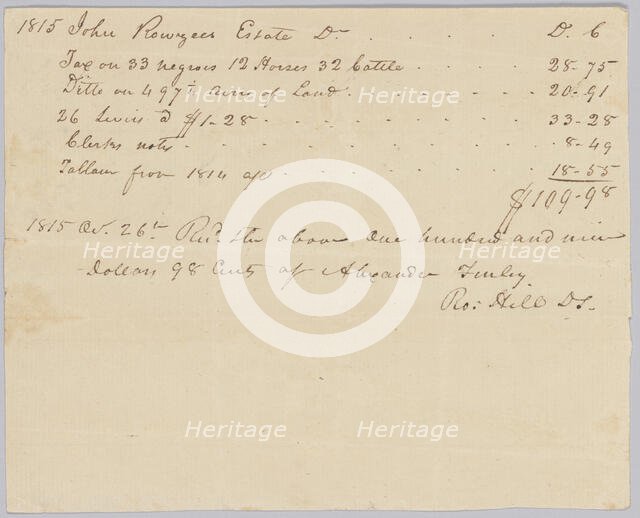 1815 John Rowzees Estate Dr . . . . D. C
Tax on 33 negroes 12 Horses 32 Cattle . . . . 28-75
Ditto on 497 Acres of Land . . . . 20-91
26 Levies @ $1-28 . . . . 33-28
Clerks notes . . . . 8-49
from 1814 . . . . 18-55
$109-98
1815 26th Recd the above One hundred and nine
Dollars 98 Cents of Alexander Finley
Ro: Hill DS.
Heritage Heritage Heritage
Heritage Heritage Heritage
Heritage Heritage Heritage